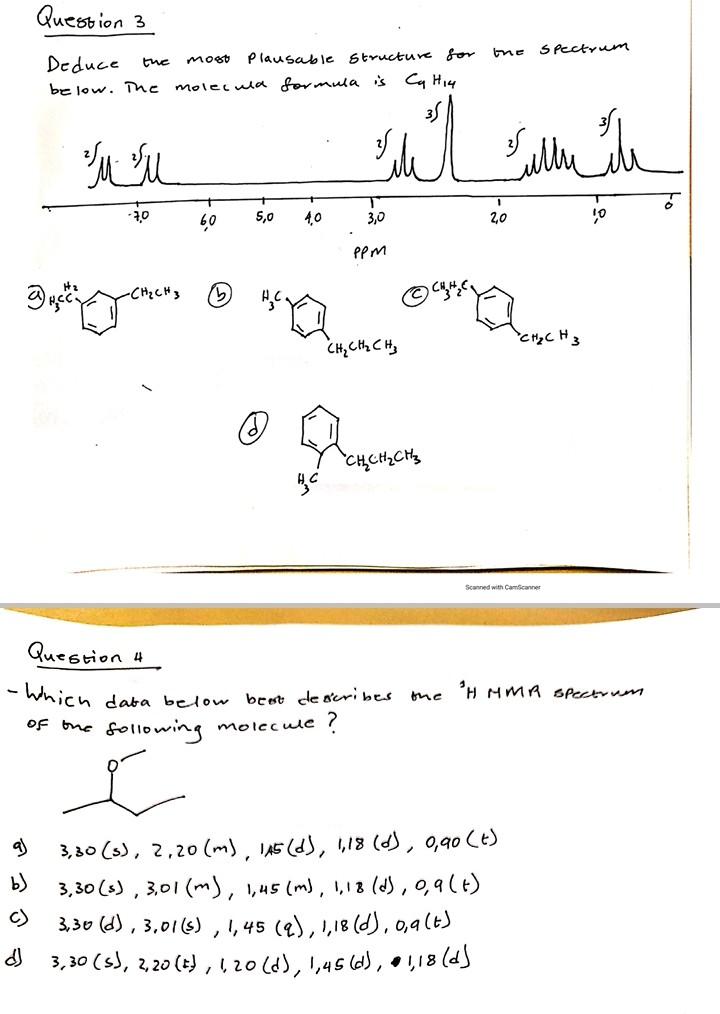 Question 3
Deduce the most Plausable structure for the spectrum
below. The molecula formula is C9 H14
2∫ 2∫ 2∫ 3∫ 2∫ 3∫
7,0 6,0 5,0 4,0 3,0 2,0 1,0 0
PPM
a) H3CC H2 CH2CH3 b) H3C CH2CH2CH3 c) CH3H2C CH2CH3
d) CH2CH2CH3
H3C
Scanned with CamScanner
Question 4
- Which data below best describes the 1H NMR spectrum
of the following molecule?
O
a) 3,30 (s), 2,20 (m), 1,45 (d), 1,18 (d), 0,90 (t)
b) 3,30 (s), 3,01 (m), 1,45 (m), 1,18 (d), 0,9 (t)
c) 3,30 (d), 3,01 (s), 1,45 (q), 1,18 (d), 0,9 (t)
d) 3,30 (s), 2,20 (t), 1,20 (d), 1,45 (d), 1,18 (d)